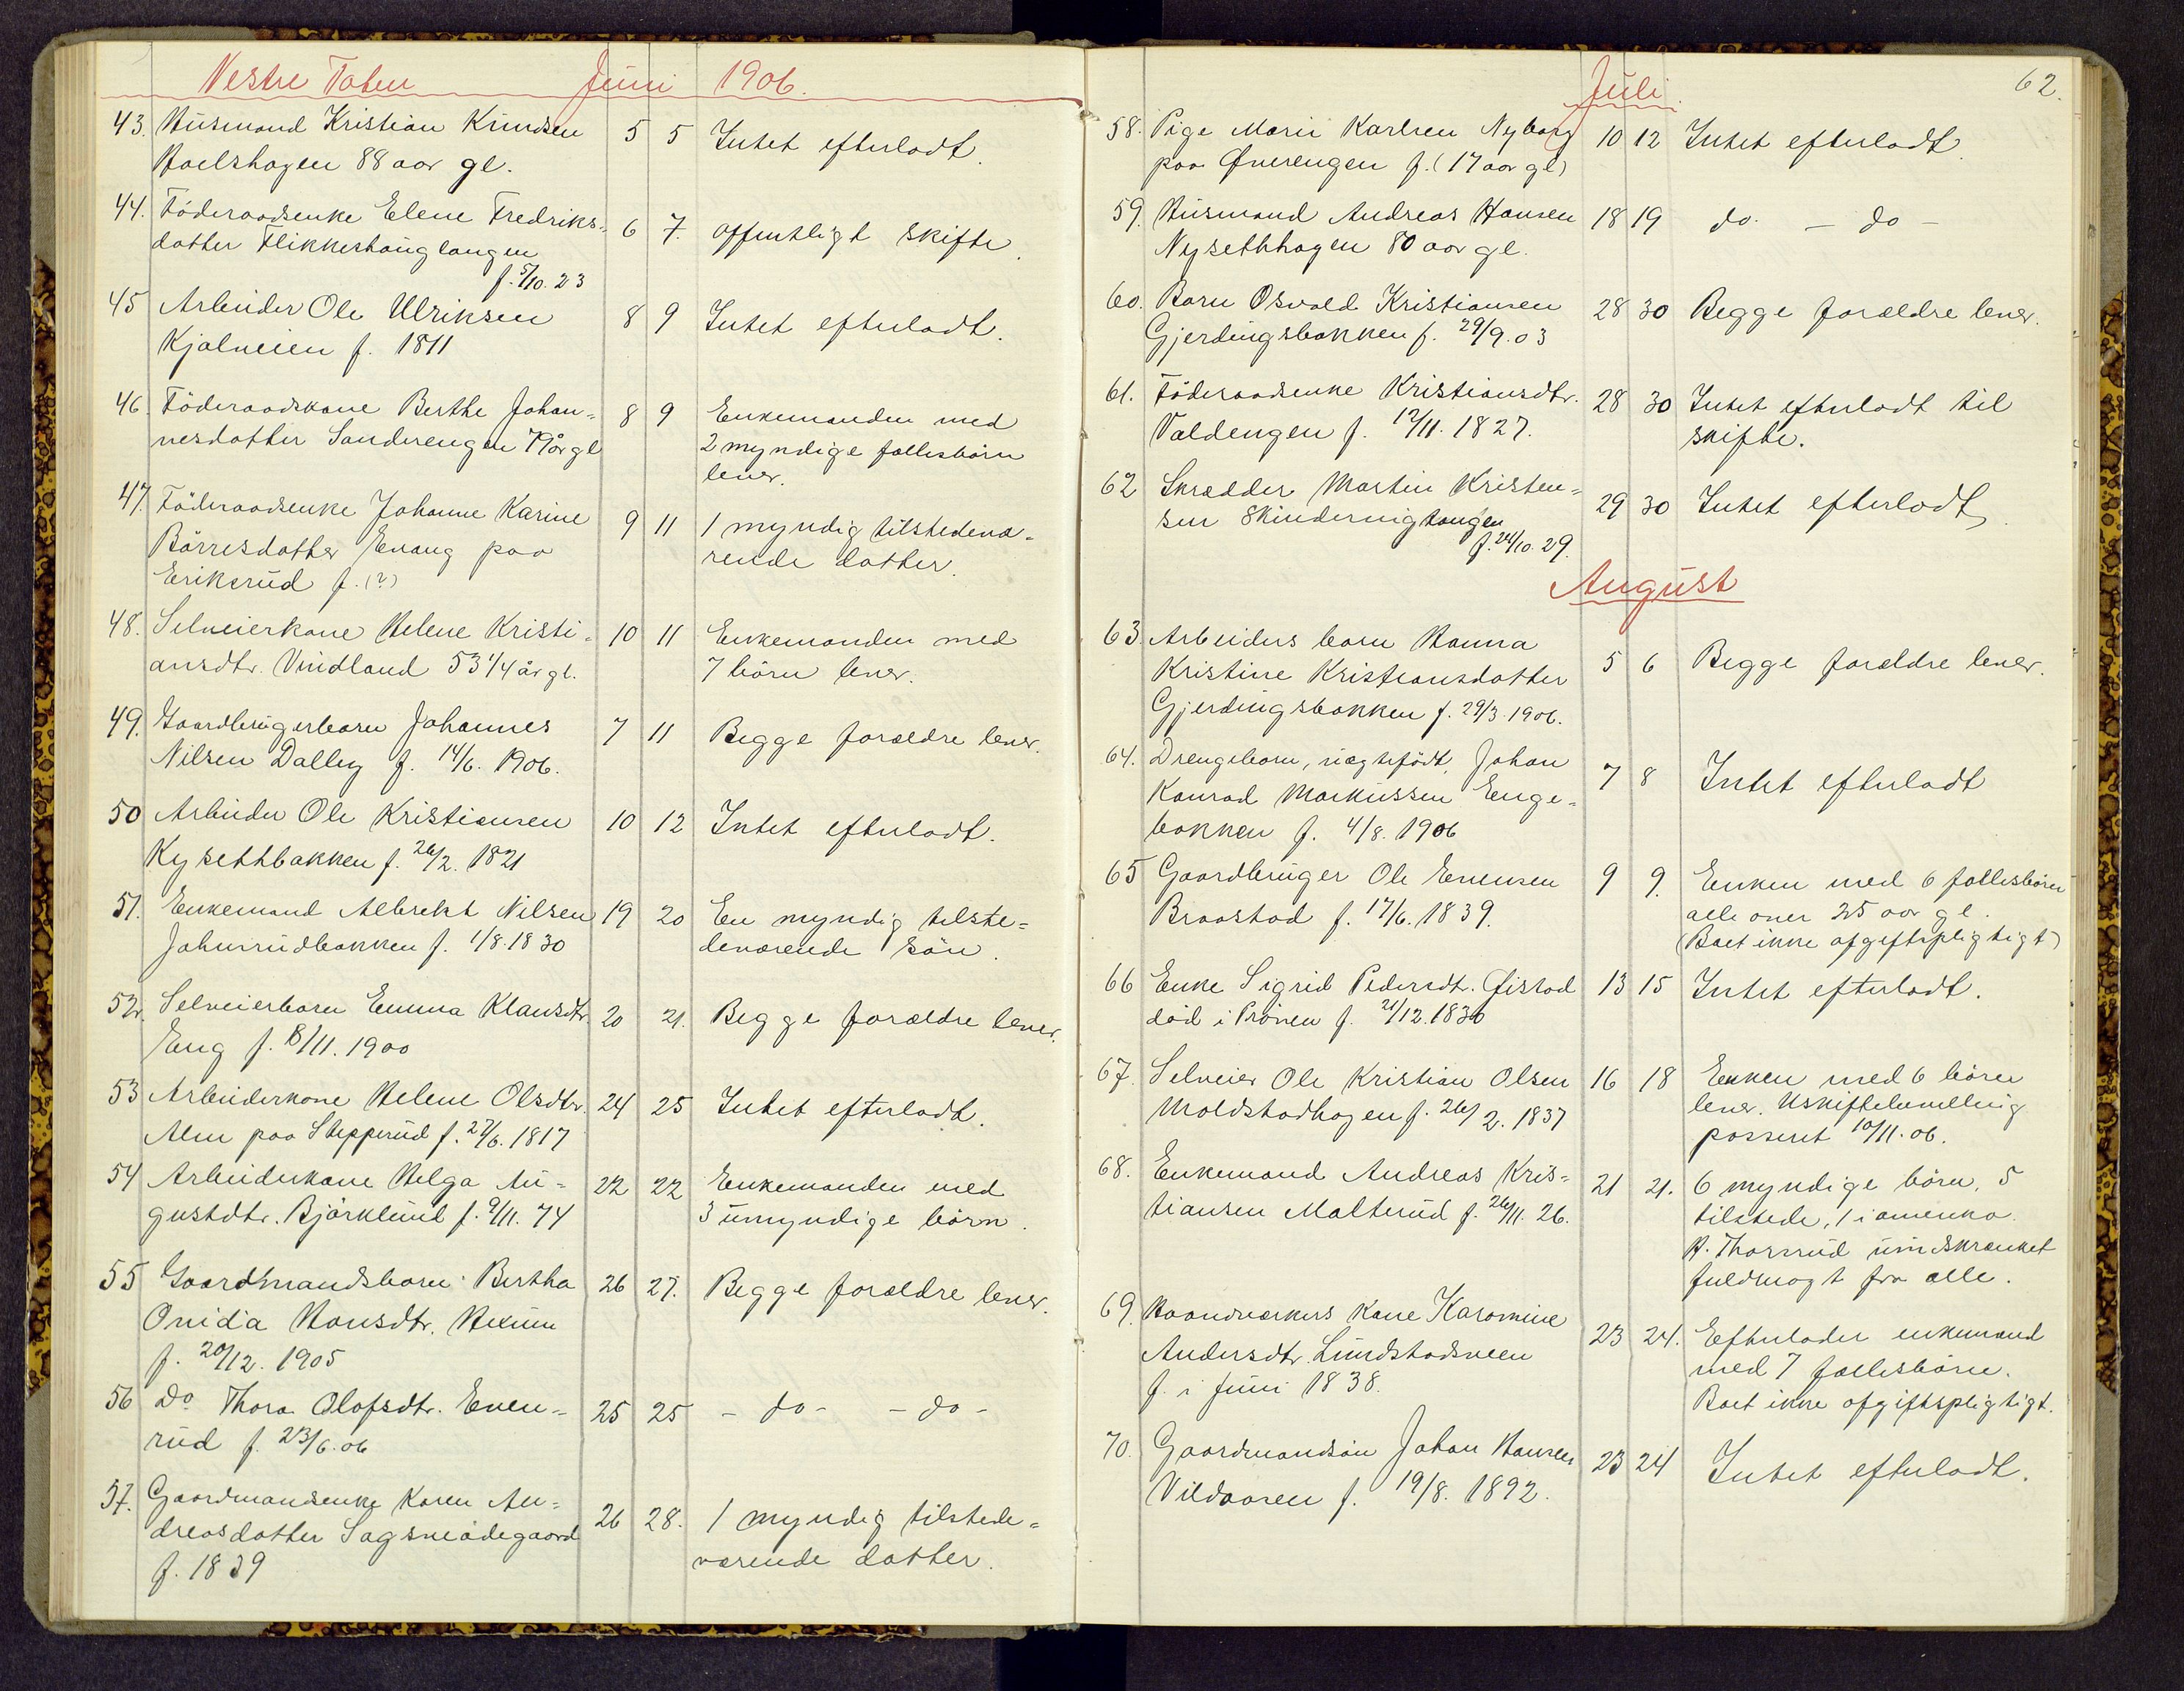 Vestre Toten Juni 1906.
43. Husmand Kristian Knudsen 5 5 Intet efterladt.
Hoelshagen 88 aar gl.
44. Föderaadsenke Elene Fredriks= 6 7. offentligt skifte.
datter Flikkershaugtangen
f. 5/10. 23
45 Arbeider Ole Ulriksen 8 9 Intet efterladt.
Kjølveien f. 1811
46. Föderaadskone Berthe Johan= 8 9 Enkemanden med
nesdatter Sanderengen 79 år gl 2 myndige fællesbörn
lever.
47. Föderaadsenke Johanne Karine 9 11 1 myndig tilstedevæ=
Börresdatter Evang paa rende datter.
Eriksrud f. (?)
48. Selveierkone Helene Kristi= 10 11 Enkemanden med
ansdtr. Vindland 53 1/4 år gl. 7 börn lever.
49. Gaardbrugerbarn Johannes 7 11 Begge forældre lever.
Nilsen Dalby f. 14/6. 1906.
50 Arbeider Ole Kristiansen 10 12 Intet efterladt.
Kysethbakken f. 26/2. 1821
51. Enkemand Albrekt Nilsen 19 20 En myndig tilste=
Johnsrudbakken f. 1/8. 1830 deværende sön.
52. Selveierbarn Emma Klausdtr. 20 21. Begge forældre lever.
Eng f. 18/11. 1900
53 Arbeiderkone Helene Olsdtr. 24 25 Intet efterladt.
Alm paa Stepperud f. 27/6. 1817
54 Arbeiderkone Helga Au= 22 22 Enkemanden med
gustdtr. Björklund f. 9/11. 74 3 umyndige börn.
55 Gaardmandsbarn Bertha 26 27. Begge forældre lever.
Onida Hansdtr. Hexum
f. 20/12. 1905
56 Do Thora Olafsdtr. Even= 25 25 – do – – do –
rud f. 23/6. 06
57. Gaardmandsenke Karen An= 26 28. 1 myndig tilstede=
dreasdatter Sagsveadegaard værende datter.
f. 1839
62.
Juli
58. Pige Marie Karlsen Nyborg 10 12 Intet efterladt.
paa Øverengen f. (17 aar gl)
59. Husmand Andreas Hansen 18 19 do. – do –
Nysethhagen 80 aar gl.
60. Barn Osvald Kristiansen 28 30 Begge forældre lever.
Gjerdingsbakken f. 29/9. 03
61. Föderaadsenke Kristiansdtr. 28 30 Intet efterladt til
Valdengen f. 12/11. 1827. skifte.
62 Skrædder Martin Kristen= 29 30 Intet efterladt.
sen f. 24/10. 29.
August
63. Arbeiders barn Hanna 5 6 Begge forældre lever.
Kristine Kristiansdatter
Gjerdingsbakken f. 29/3. 1906.
64. Drengebarn, uægtefödt, Johan 7 8 Intet efterladt
Konrad Markussen Enge=
bakken f. 4/8. 1906
65 Gaardbruger Ole Evensen 9 9. Enken med 6 fællesbörn
Braastad f. 17/6. 1839. alle over 25 aar gl.
(Boet ikke afgiftspligtigt)
66 Enke Sigrid Pedersdt. Øistad 13 15 Intet efterladt.
död i Pröven f. 21/12. 1830
67. Selveier Ole Kristian Olsen 16 18 Enken med 6 börn
Moldstadhagen f. 26/2. 1837 lever. Uskiftebevilling
passeret 10/11. 06.
68. Enkemand Andreas Kris= 21 21. 6 myndige börn, 5
tiansen Malterud f. 26/11. 26. tilstede, 1 i amerika.
H. Thorsrud uindskrænket
fuldmagt fra alle.
69. Haandværkers kone Karomine 23 24. Efterlader enkemand
Andersdtr. Lundstadsveen med 7 fællesbörn.
f. i Juni 1838. Boet ikke afgiftspligtigt.
70. Gaardmandsön Johan Hansen 23 24 Intet efterladt.
Vildaaren f. 19/8. 1892.